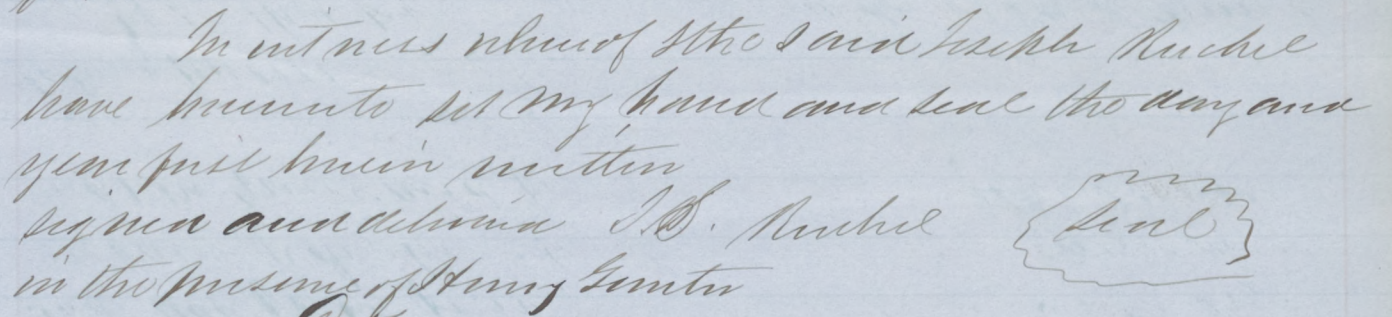 In witness whereof I the said Joseph Ruchel
have hereunto set my hand and seal the day and
year first herein written
signed and delivered J. B. Ruchel seal
in the presence of Henry Gunter